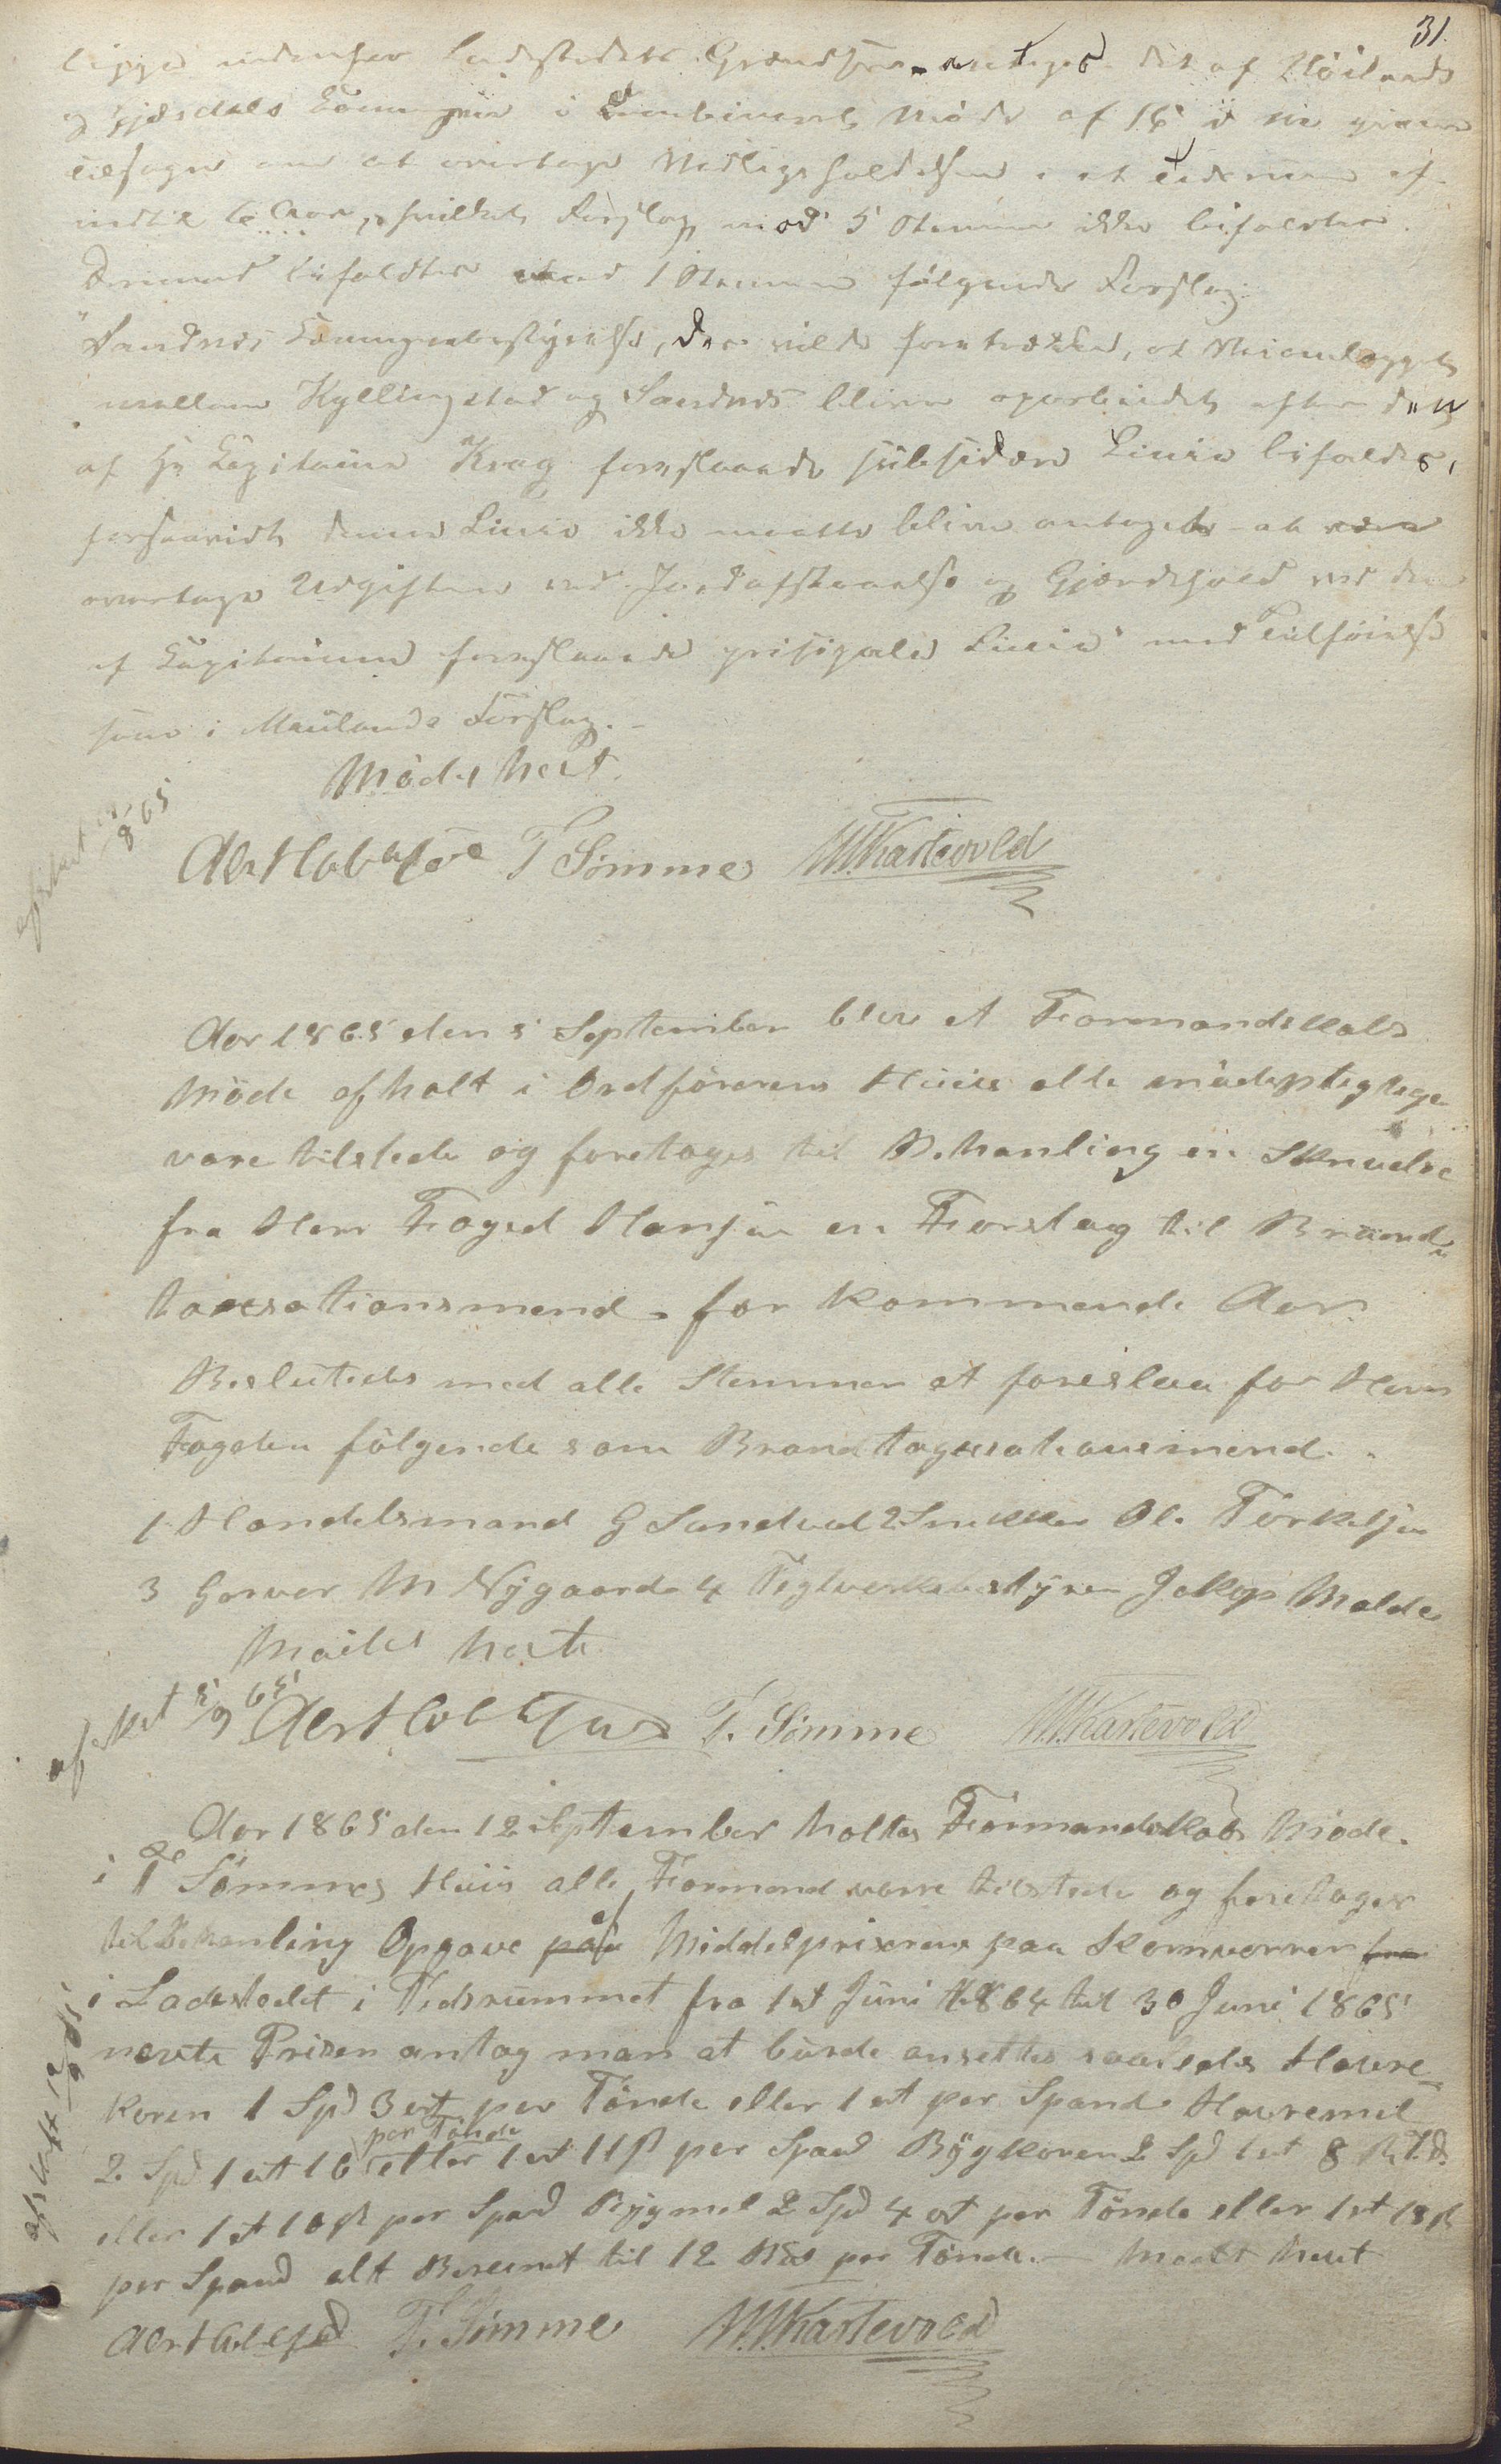 31.
ligger indenfor Ladestedets Grændser antages det af Höilands
og Gjesdals Commune i Møde af 16 givne
Tilsagn om at overtage Vedligeholdelsen i et Tidsrum af
indtil 6 Aar, hvilket Forslag mod 5 Stemmer ikke bifaldtes.
Derimod bifaldtes mod 1 Stemme følgende Forslag:
"Sandnes Communebestyrelse, der vilde foretrække, at Veianlægget
mellem Kyllingstad og Sandnes bliver oparbeidet efter den
af Hr Capitaine Krag foreslaaede subsidære Linie bifaldes,
forsaavidt denne Linie ikke maatte blive antaget at
overtage Udgifterne ved Jordafstaaelse og Gjærdehold ved den
af Capitainen foreslaaede prinsipale Linie" med Tilføielse
som i Maulands Forslag. –
Mödet hævt.
T Sömme MKartevold
865
Aar 1865 den 5 September blev et Formandskabs
Möde afholt i Ordförerens Huus alle mödepligtige
vare tilstede og foretoges til Behanling en Skrivelse
fra Herr Foged Hansen en Forslag til Brand-
taxsationsmend for kommende Aar
Beslutedes med alle Stemmer at foreslaa for Herr
Fogden fölgende som Brandtagxsationsmend.
1 Handelsmand G Sandved 2 Snekker Ole Torkelsen
3 Garver M Nygaard 4 Teglverksbestyrer Jakop Malde
Mödet hevt
afskret 5/9 65 T. Sömme MKartevold
Aar 1865 den 12 September holtes Formandskabs Möde
i T Sömmes Huus alle Formend vare tilstede og foretoges
til Behanling Opgave paa af Middelpriserne paa Kornvarer fra
i Ladestedet i Tidsrummet fra 1st Juni 1864 til 30 Juni 1865
nevnte Priser antog man at burde ansettes saaledes Havre-
koren 1 Spd 3 ort per Tönde eller 1 ort per Spand Havremel
2 Spd 1 ort 16 per Tönde eller 1 ort 11 ß per Spand Bygkoren 2 Spd 1 ort 8 ß
eller 1 ort 10 ß per Spand Bygmel 2 Spd 4 ort per Tönde eller 1 ort 18 ß
per Spand alt Bereenet til 12 per Tönde. – Mödet hævet
T. Sömme MKartevold